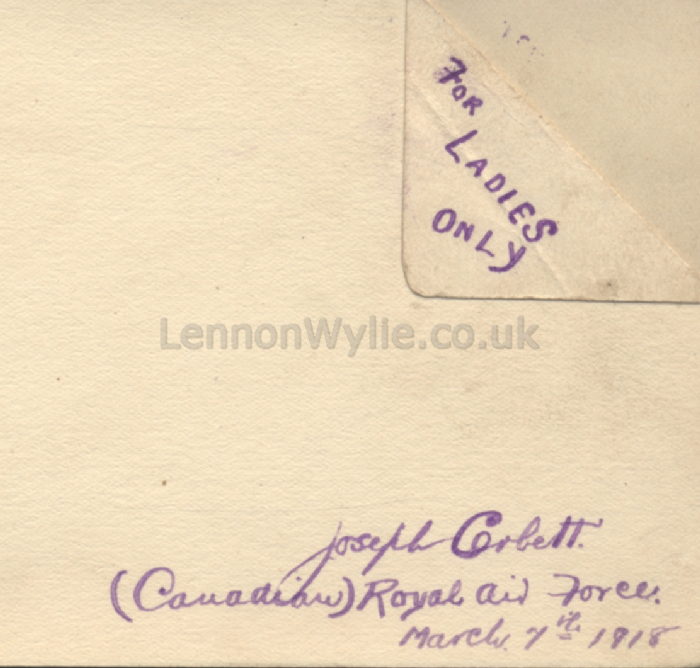 FOR
LADIES
ONLY
LennonWylie.co.uk
Joseph Corbett.
(Canadian) Royal Air Force.
March 7th 1918